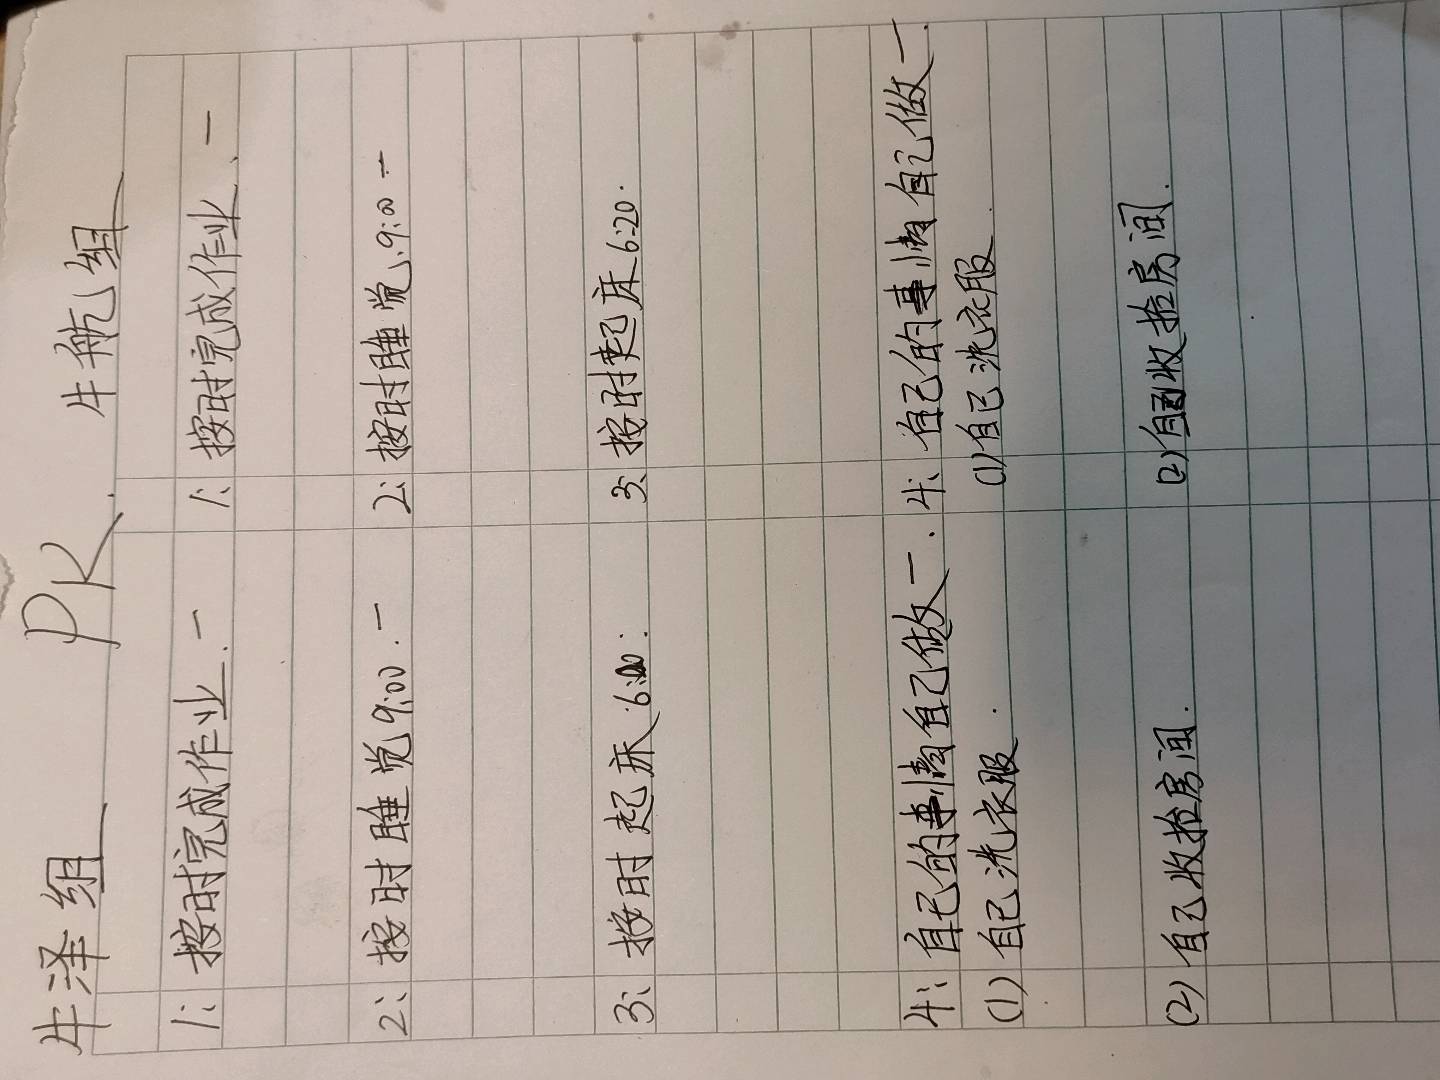 牛泽组 PK 牛航组
1: 按时完成作业.一 1: 按时完成作业、一
2: 按时睡觉9:00.一 2: 按时睡觉.9:00一
3: 按时起床 3: 按时起床6:20.
4: 自己的事情自己做一. 4: 自己的事情自己做一.
(1) 自己洗衣服. (1) 自己洗衣服.
(2) 自己收拾房间. (2) 自己收拾房间.